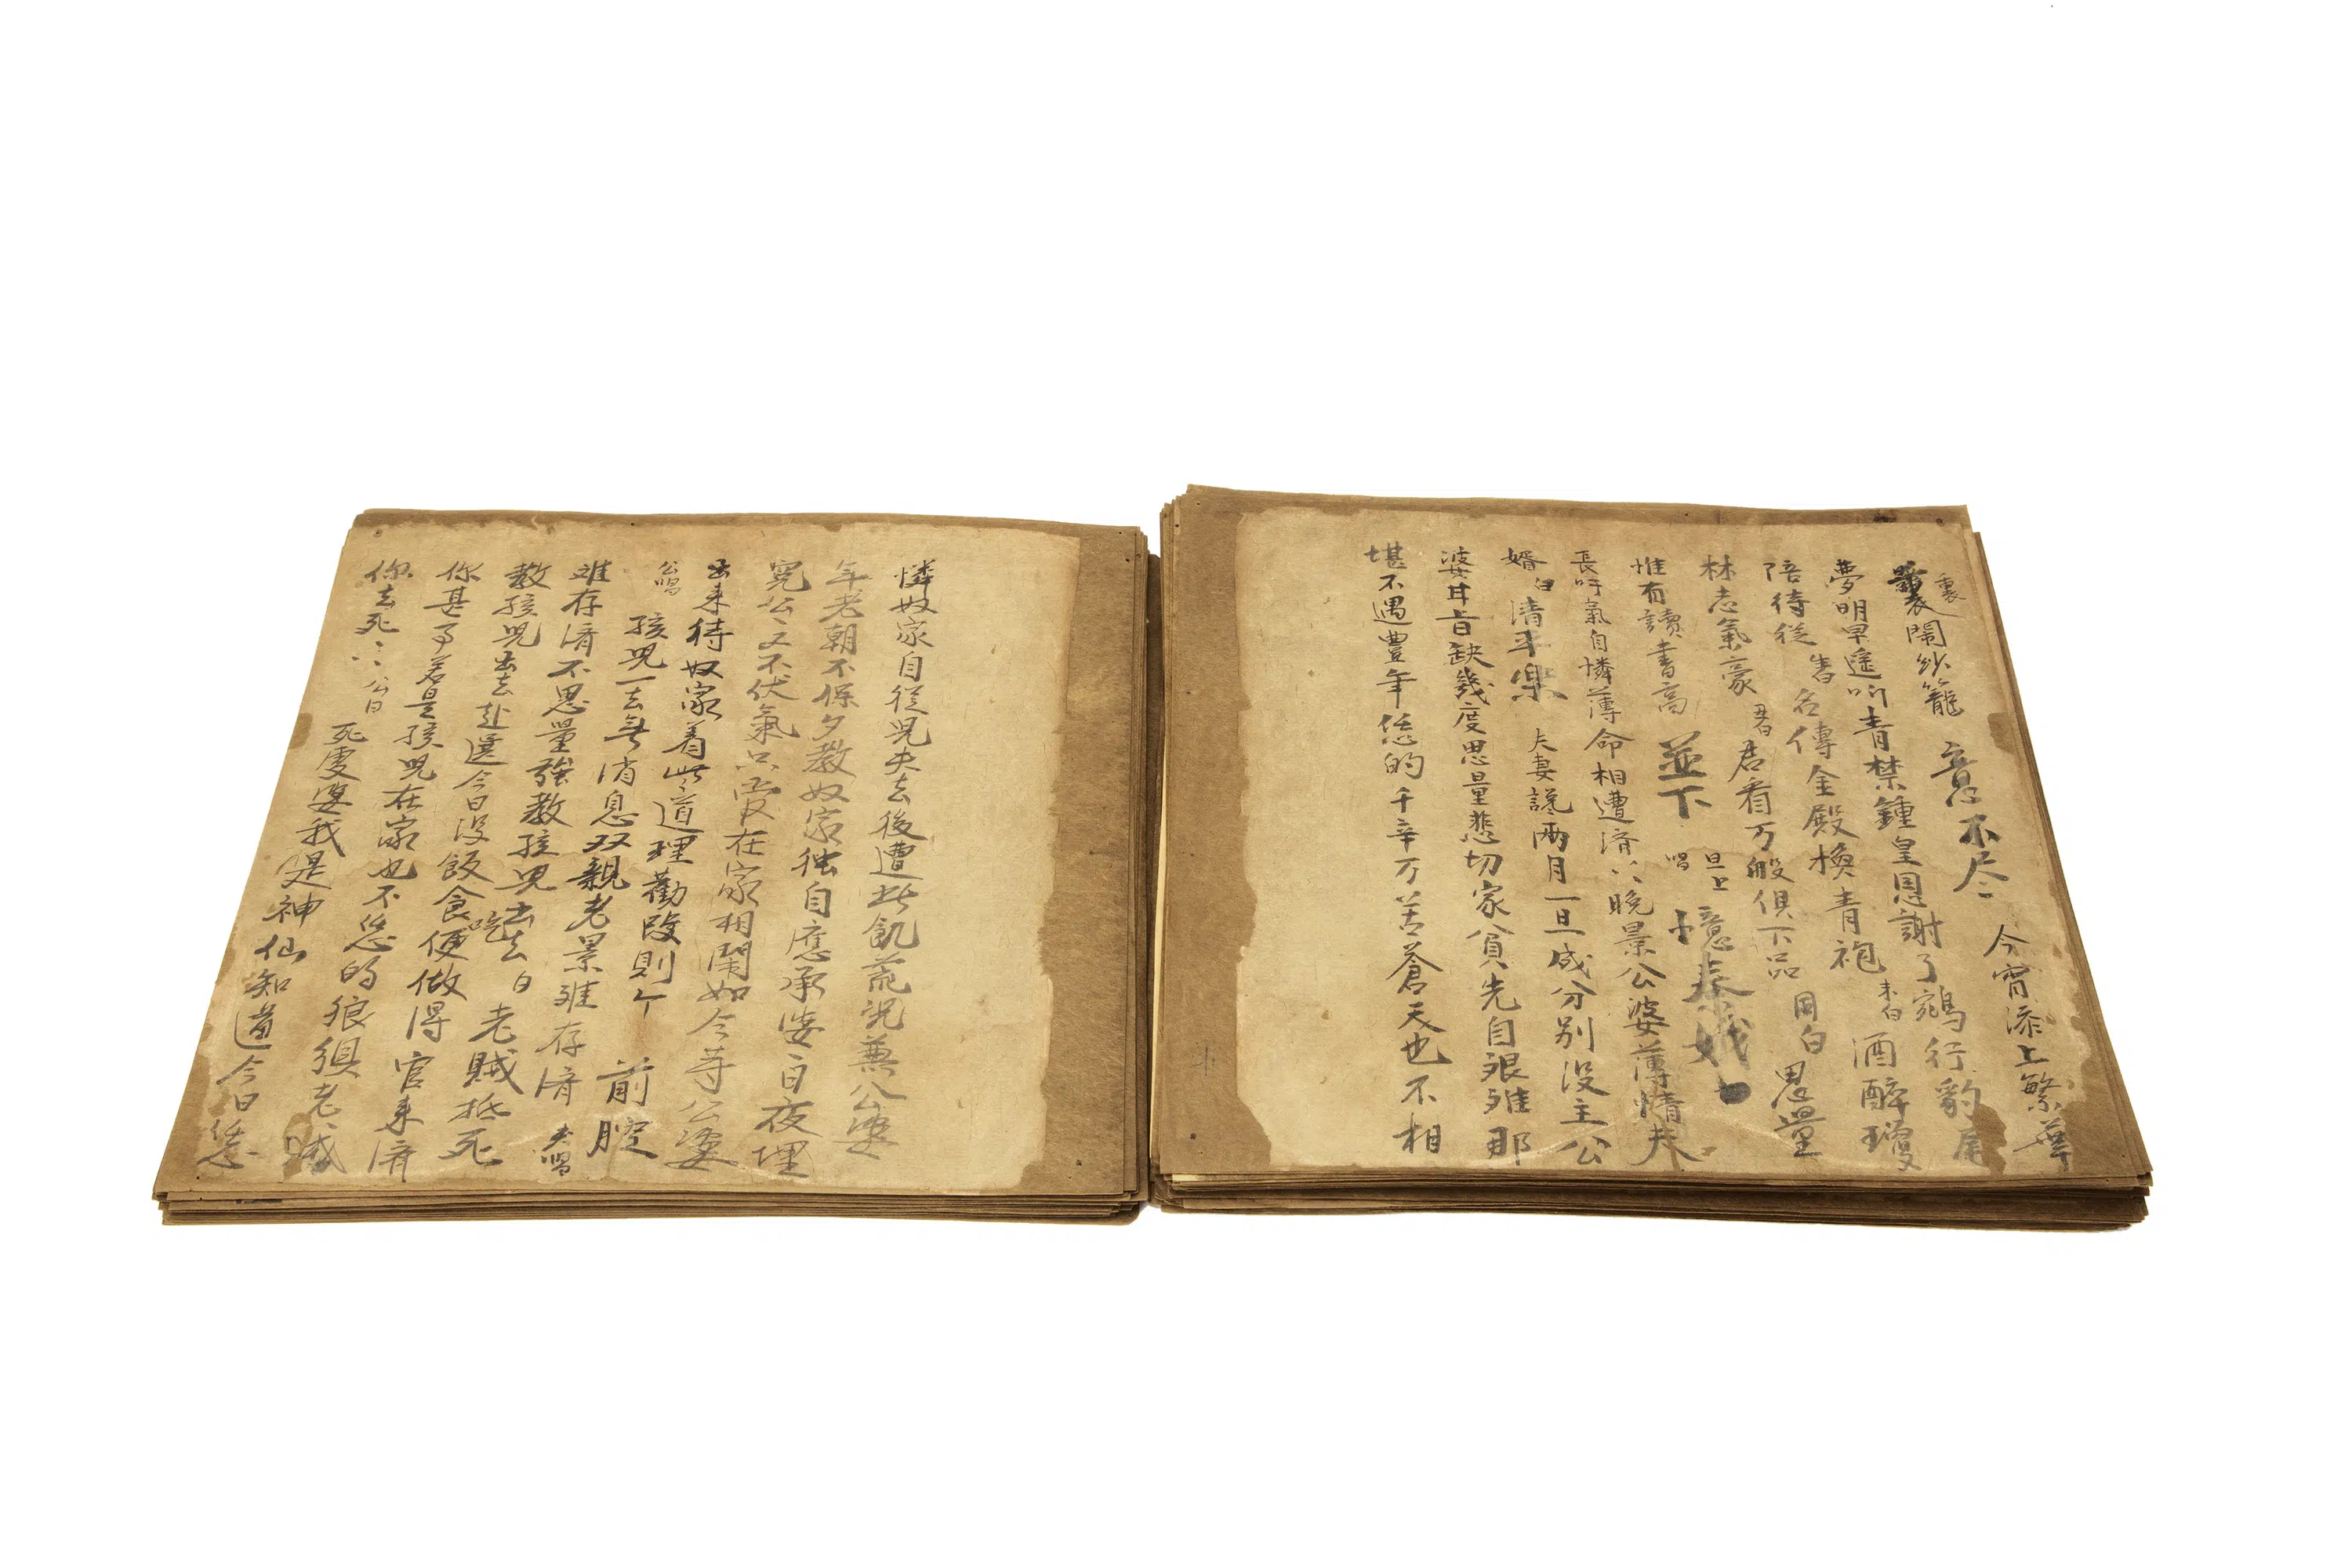 裏
裏鬧紗籠 意不尽 今宵添上繁華
夢明早遙听青禁鍾皇恩謝了鵷行豹尾
陪待從 生 名傳金殿換青袍 末白 酒醉瓊
林志氣豪 丑 君看万般俱下品 同白 思量
惟有讀書高 並下 旦上唱 憶秦娥
長吁氣自憐薄命相遭済〻晚景公婆薄情夫
婿 白 清平樂 夫妻讒兩月一旦成分别没主公
婆甘旨缺幾度思量悲切家貧先自艰难那
堪不遇豊年恁的千辛万苦蒼天也不相
憐奴家自從兒夫去後遭此飢荒况兼公婆
年老朝不保夕教奴家独自應承婆〻日夜埋
冤公〻又不伏氣只管在家相鬧如今等公婆
出来待奴家着些道理勸改則个 前腔
公唱 孩兒一去無消息双親老景难存済 夫唱
难存済不思量强教孩兒出去 白 老賊抵死
教孩兒出去赴選今日没飯食吃便做得官来済
你甚事若是孩兒在家也不恁的狼狽老賊
你去死〻 公白 死虔婆我是神仙知道今日恁